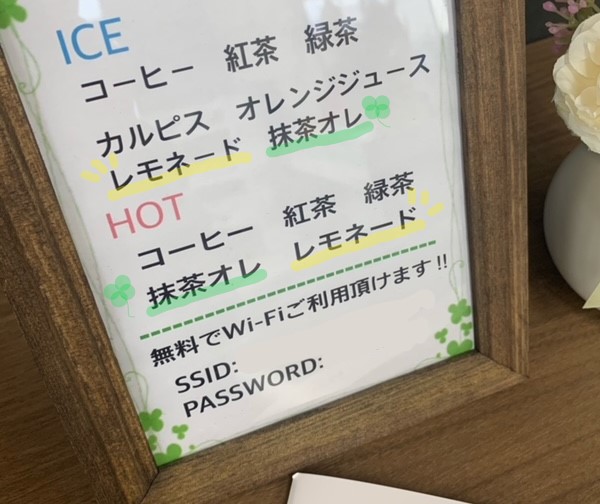 ICE
コーヒー 紅茶 緑茶
カルピス オレンジジュース
レモネード 抹茶オレ
HOT
コーヒー 紅茶 緑茶
抹茶オレ レモネード
無料でWi-Fiご利用頂けます!!
SSID:
PASSWORD: